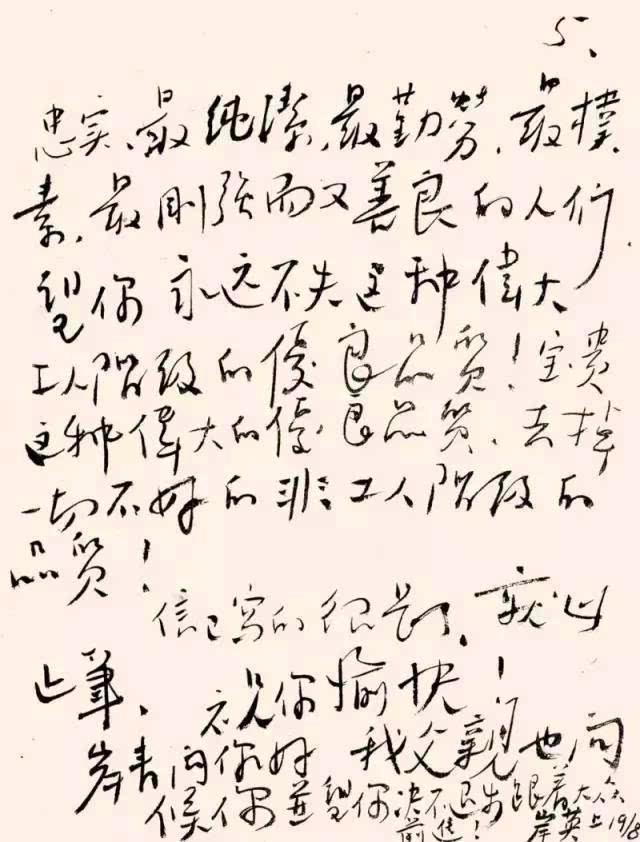 5、
忠实、最純潔、最勤劳、最樸
素、最刚强而又善良的人们
望你永远不失这种偉大
工人阶级的優良品質！宝贵
这种偉大的優良品質、去掉
一切不好的非工人阶级的
品質！
信已写的很长了、就此
止筆、祝你愉快！
岸青问你好 我父親也问
候你並望你决不退步跟着大众
前進！
岸英上 19/8